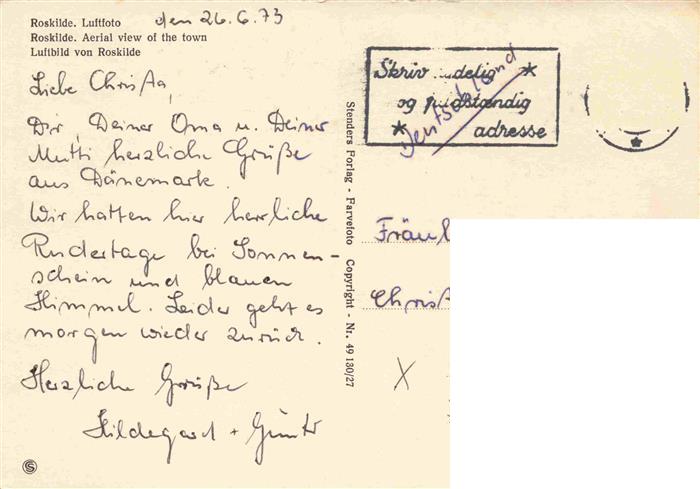 Roskilde. Luftfoto
Roskilde. Aerial view of the town
Luftbild von Roskilde
den 26.6.73
Liebe Christa,
Dir, Deiner Oma u. Deiner
Mutti herzliche Grüße
aus Dänemark.
Wir hatten hier herrliche
Rudertage bei Sonnen-
schein und blauen
Himmel. Leider geht es
morgen wieder zurück.
Herzliche Grüße
Hildegard + Günter
Stenders Forlag - Farvefoto Copyright - Nr. 49 130/27
Skriv tydelig *
og fuldstændig
* adresse
Deutschland
Fräul
Christ
X
S